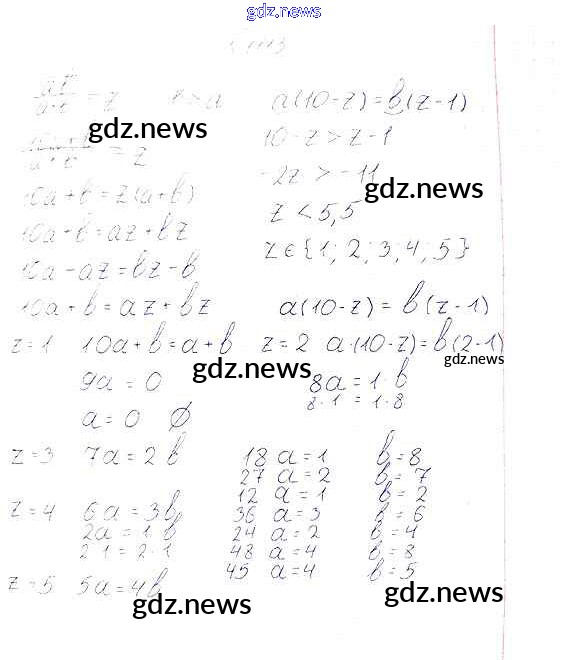 gdz.ru
1113
= z b > a a(10-z) = b(z-1)
gdz.news
= z 10-z > z-1
-2z > -11
gdz.news
10a + b = z(a+b) z < 5,5
10a + b = az + bz z ∈ {1; 2; 3; 4; 5}
10a - az = bz - b
10a + b = az + bz a(10-z) = b(z-1)
z = 1 10a + b = a + b z = 2 a·(10-z) = b(2-1)
gdz.news
gdz.news
9a = 0 8a = 1·b
8·1 = 1·8
a = 0 Ø
z = 3 7a = 2b 18 a = 1 b = 8
27 a = 2 b = 7
12 a = 1 b = 2
z = 4 6a = 3b 36 a = 3 b = 6
2a = 1·b 24 a = 2 b = 4
2·1 = 2·1 48 a = 4 b = 8
z = 5 5a = 4b 45 a = 4 b = 5
gdz.news
gdz.news